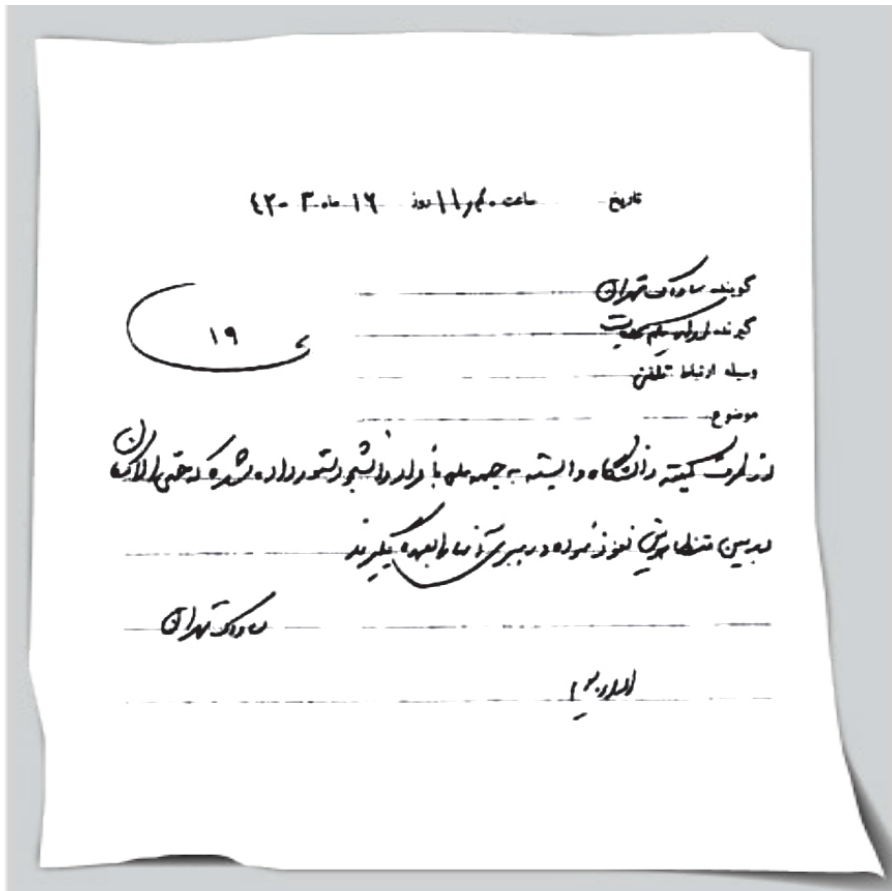 تاریخ ساعت ۱۱ روز ۱۶ ماه ۳ -۴۲
گوینده ساواک تهران
گیرنده
۱۹
وسیله ارتباط تلفن
موضوع
از طرف کمیته دانشگاه وابسته به جبهه ملی بافراد دانشجو دستور داده شده که حتی الامکان
در بین متظاهرین نفوذ نموده و رهبری آنها را بعهده بگیرند
ساواک تهران